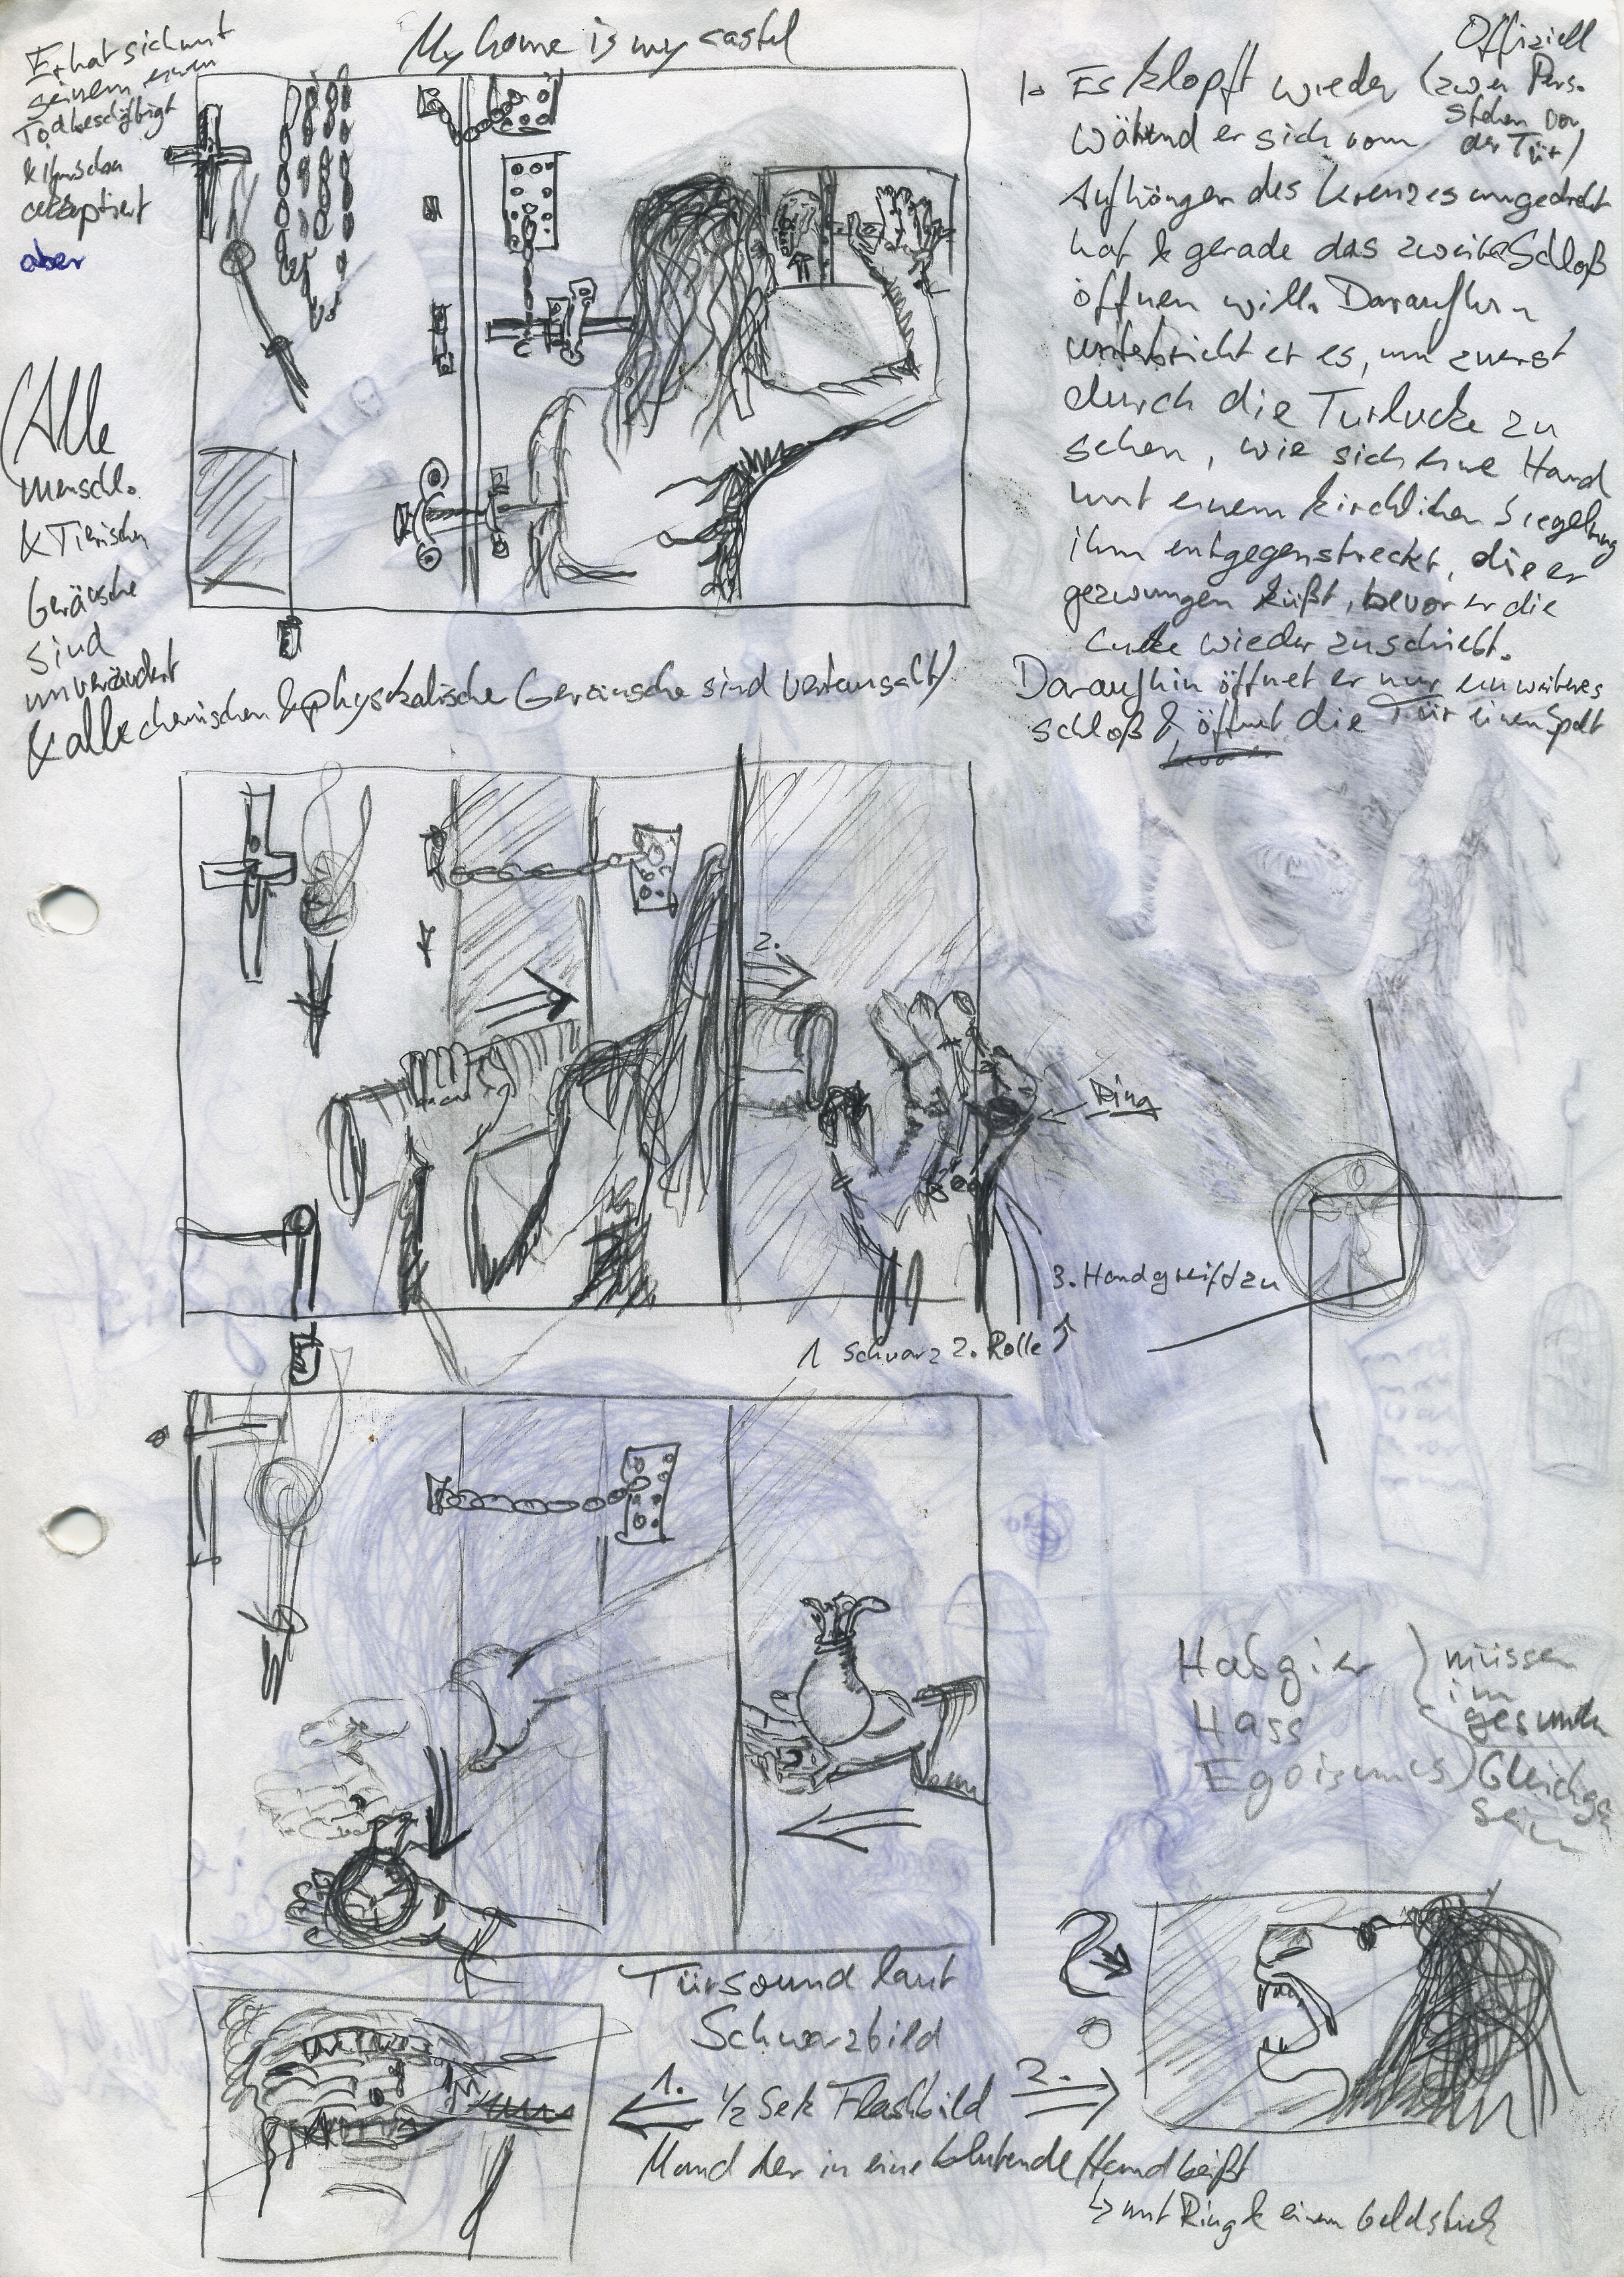 My home is my castel
Er hat sich mit
seinem
Tod beschäftigt
& ihn schon
akzeptiert
aber
(Alle
menschl.
& Tierischen
Geräusche
sind
unverändert
& alle chemischen & physikalische Geräusche sind vertauscht)
Offiziell
1. Es klopft wieder (zwei Pers.
stehen vor
der Tür)
während er sich vom
Aufhängen des Kreuzes umgedreht
hat & gerade das zweite Schloß
öffnen will. Daraufhin
unterbricht er es, um zuerst
durch die Türlucke zu
sehen, wie sich eine Hand
mit einem kirchlichen Siegelring
ihm entgegenstreckt, die er
gezwungen küßt, bevor er die
Lucke wieder zuschiebt.
Daraufhin öffnet er nur ein weiteres
schloß & öffnet die Tür einen Spalt
2.
Ring
3. Hand greift zu
1 Schwarz 2. Rolle
Habgier
Hass
Egoismus
müssen
im
gesunden
Gleichge
sein
Türsound laut
Schwarzbild
1.
1/2 Sek Flashbild
2.
Mund der in eine blutende Hand beißt
mit Ring & einem Geldstück